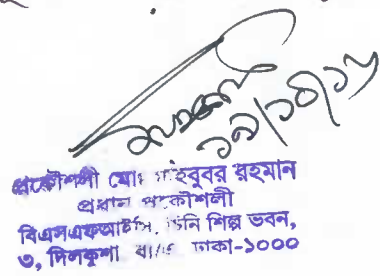 ১৯/১০/১৬
প্রকৌশলী মোঃ মাহবুবর রহমান
প্রধান প্রকৌশলী
বিএসএফআইসি, চিনি শিল্প ভবন,
৩, দিলকুশা বা/এ ঢাকা-১০০০